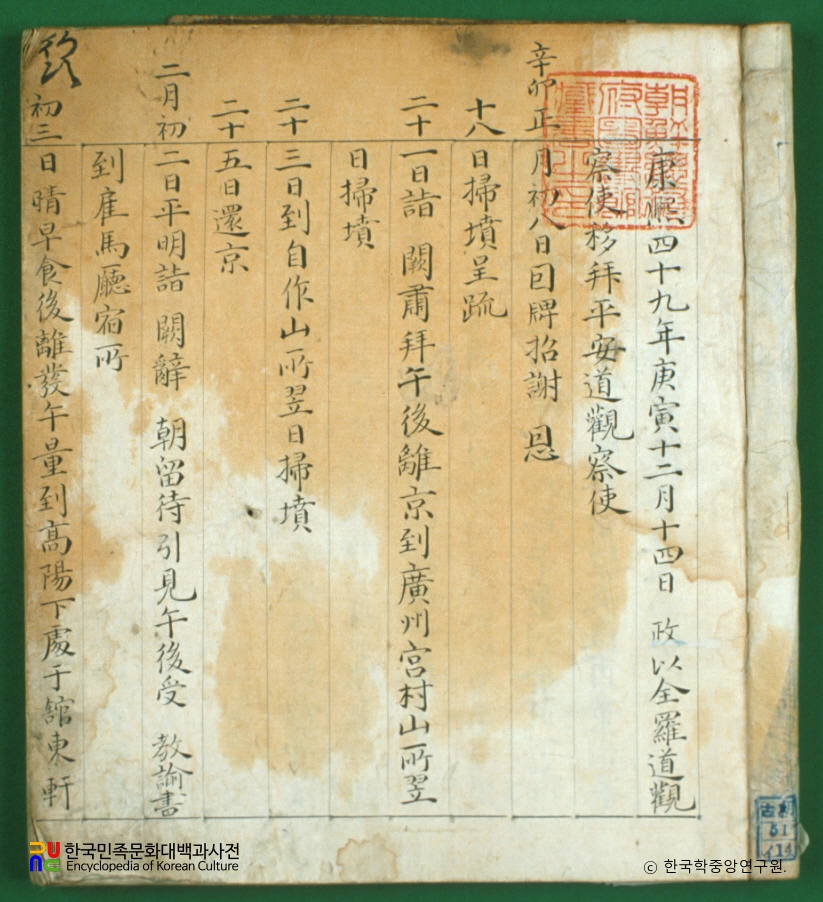 康熙四十九年庚寅十二月十四日 政以全羅道觀
察使移拜平安道觀察使
辛卯正月初八日囙牌招謝 恩
十八日掃墳呈疏
二十一日詣 闕肅拜午後離京到廣州宮村山所翌
日掃墳
二十三日到自作山所翌日掃墳
二十五日還京
二月初二日平明詣 闕辭 朝留待引見午後受 教諭書
到雇馬廳宿所
初三日晴早食後離發午量到高陽下處于館東軒
한국민족문화대백과사전
Encyclopedia of Korean Culture
ⓒ 한국학중앙연구원.